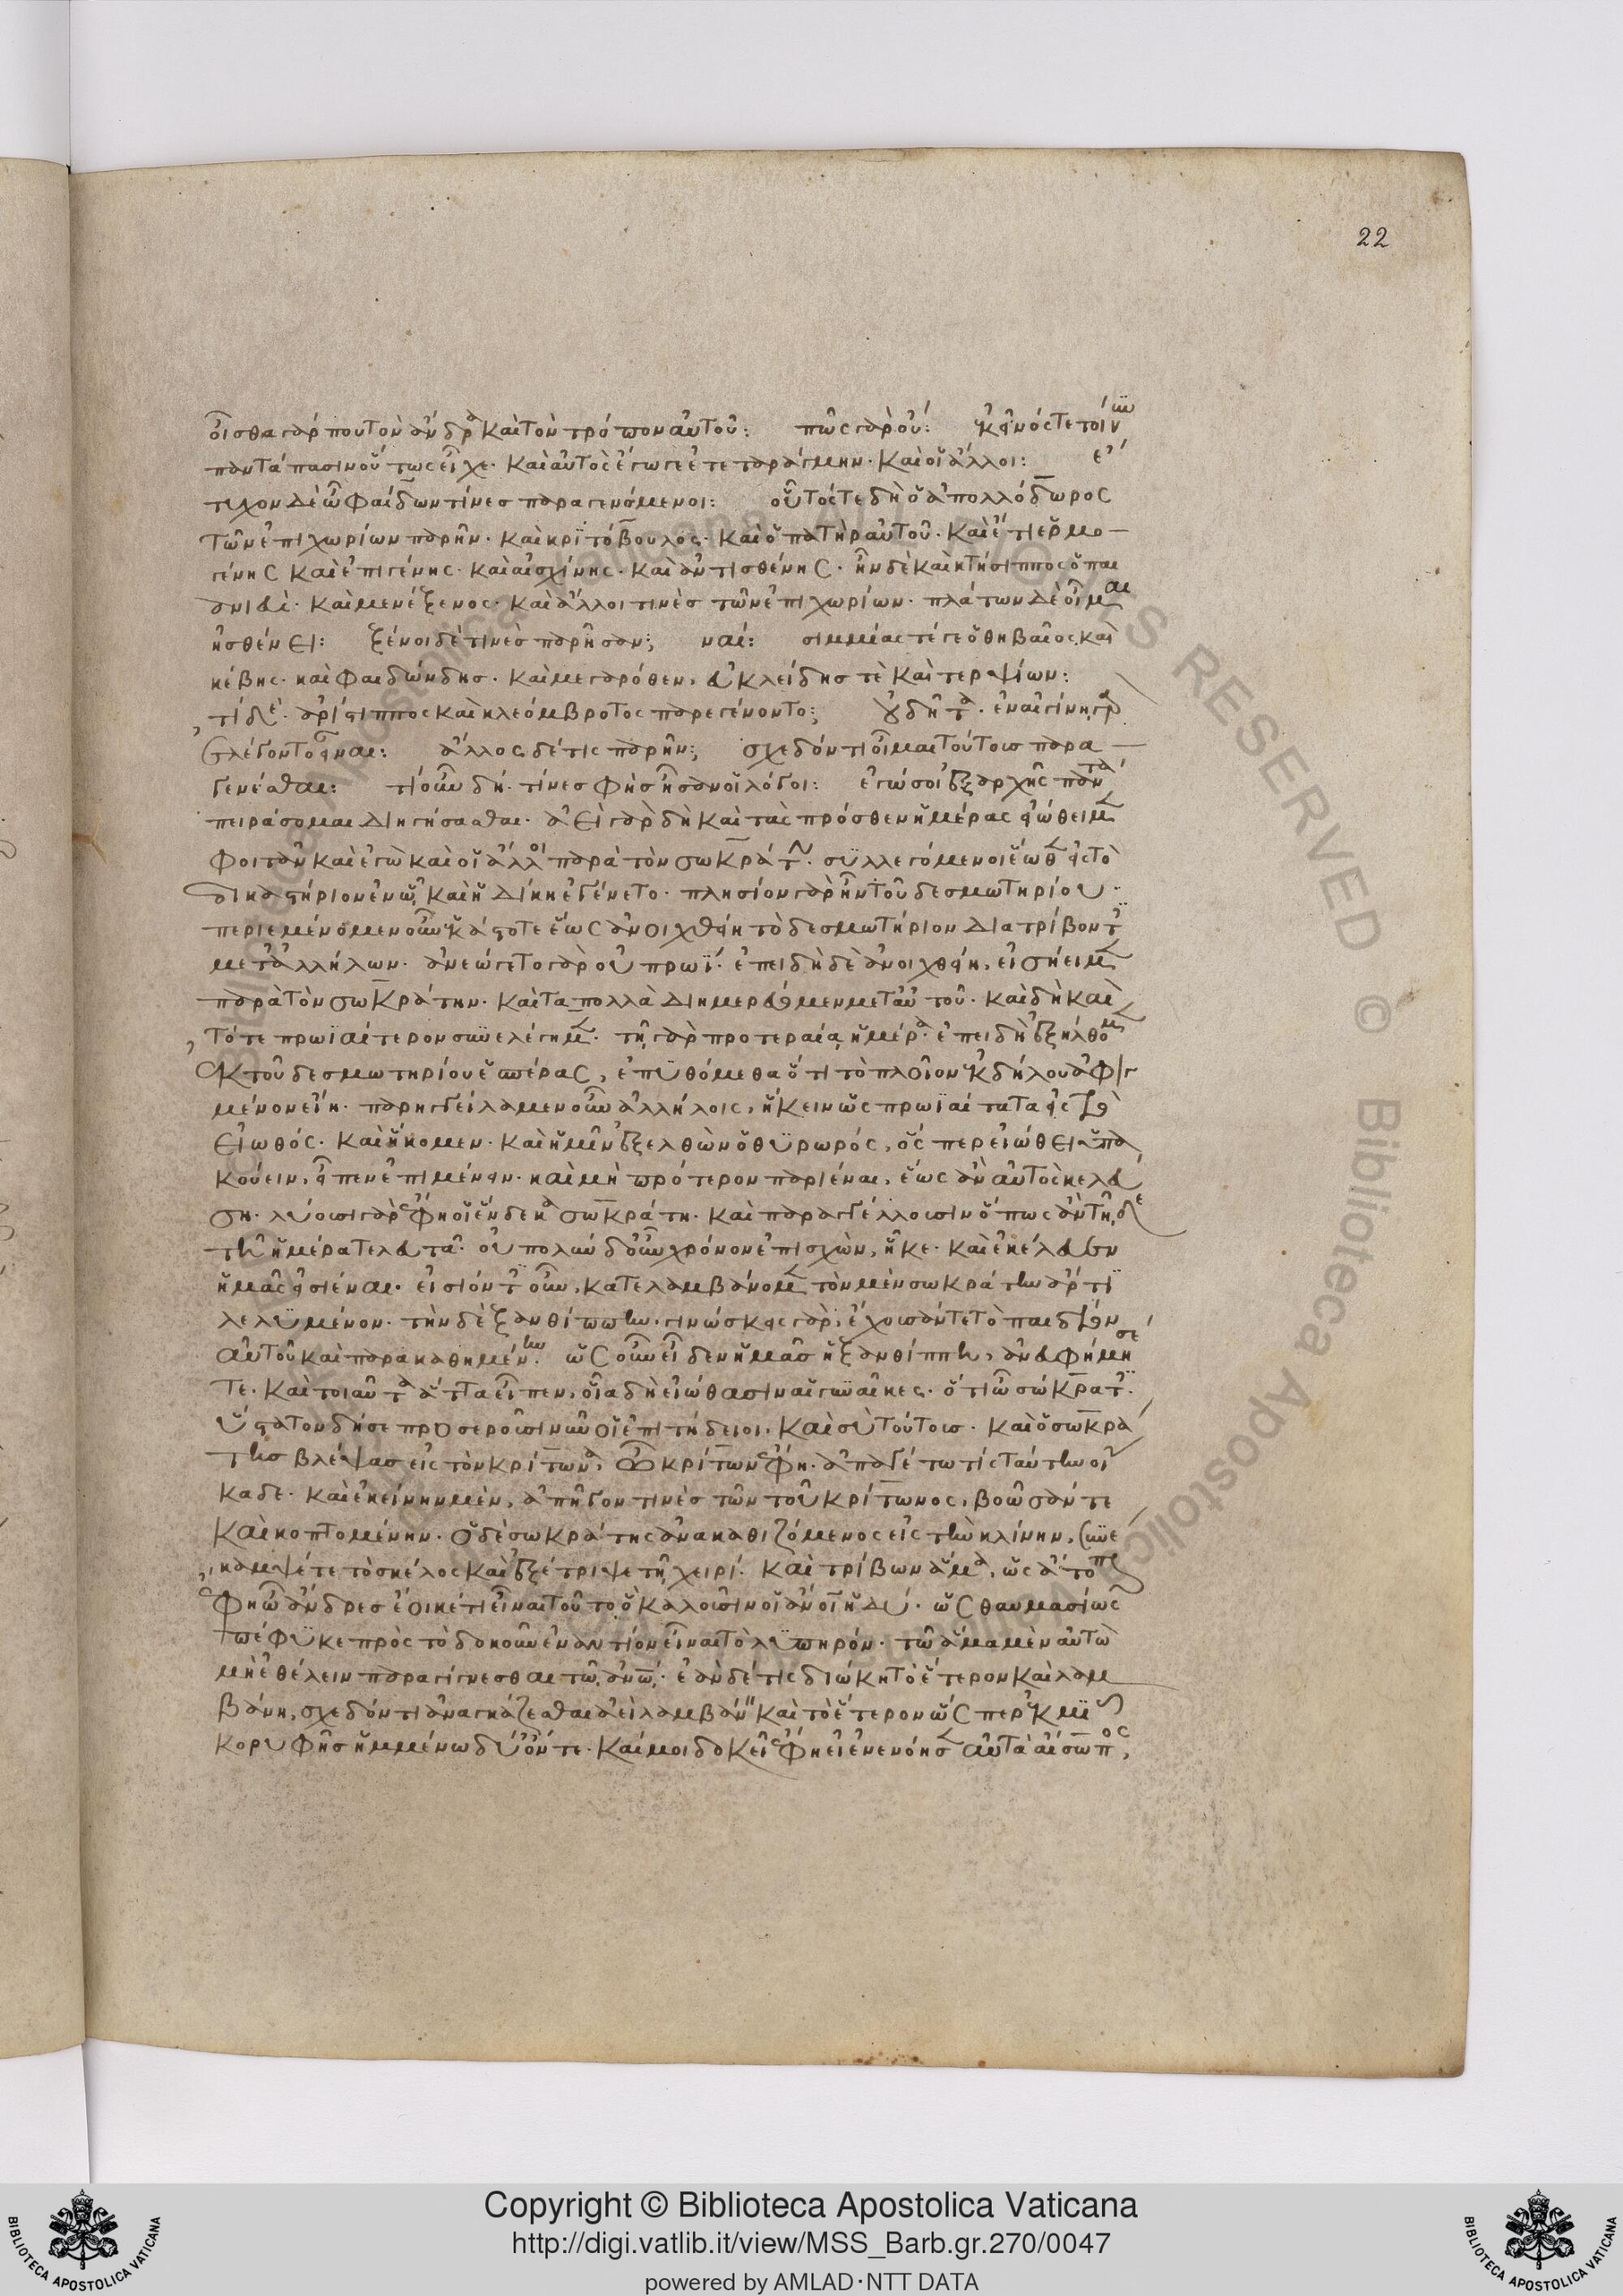 22
οἶσθα γάρ που τὸν ἄνδρα καὶ τὸν τρόπον αὐτοῦ: πῶς γὰρ οὔ: ἐκεῖνός τε τοίνυν
παντάπασιν οὕτως εἶχε· καὶ αὐτὸς ἔγωγε ἐτεταράγμην· καὶ οἱ ἄλλοι: ἔ
τυχον δὲ ὦ φαίδων τίνες παραγενόμενοι: οὗτός τε δὴ ὁ ἀπολλόδωρος
τῶν ἐπιχωρίων παρῆν· καὶ κριτόβουλος· καὶ ὁ πατὴρ αὐτοῦ· καὶ ἔτι ἑρμο
γένης καὶ ἐπιγένης· καὶ αἰσχίνης· καὶ ἀντισθένης· ἦν δὲ καὶ κτήσιππος ὁ παι
ανιεὺς· καὶ μενέξενος· καὶ ἄλλοι τινὲς τῶν ἐπιχωρίων· πλάτων δὲ οἶμαι
ἠσθένει: ξένοι δὲ τινὲς παρῆσαν; ναί: σιμμίας τέ γε ὁ θηβαῖος καὶ
κέβης· καὶ φαιδώνδης· καὶ μεγαρόθεν, εὐκλείδης τὲ καὶ τερψίων:
τί δέ· ἀρίστιππος καὶ κλεόμβροτος παρεγένοντο; οὐ δῆτα· ἐν αἰγίνῃ γὰρ
ἐλέγοντο εἶναι: ἄλλος δέ τις παρῆν; σχεδόν τι οἶμαι τούτοις παρα
γενέσθαι: τί οὖν δή· τίνες φὴς ἦσαν οἱ λόγοι: ἐγώ σοι ἐξ ἀρχῆς πάντα
πειράσομαι διηγήσασθαι· ἀεὶ γὰρ δὴ καὶ τὰς πρόσθεν ἡμέρας εἰώθειμεν
φοιτᾶν καὶ ἐγὼ καὶ οἱ ἄλλοι παρὰ τὸν σωκράτην· συλλεγόμενοι ἕωθεν εἰς τὸ
δικαστήριον ἐν ᾧ καὶ ἡ δίκη ἐγένετο· πλησίον γὰρ ἦν τοῦ δεσμωτηρίου·
περιεμένομεν οὖν ἑκάστοτε ἕως ἀνοιχθείη τὸ δεσμωτήριον διατρίβοντες
μετ' ἀλλήλων· ἀνεώγετο γὰρ οὐ πρωΐ· ἐπειδὴ δὲ ἀνοιχθείη, εἰσῄειμεν
παρὰ τὸν σωκράτην· καὶ τα πολλὰ διημερεύομεν μετ' αὐτοῦ· καὶ δὴ καὶ
τότε πρωϊαίτερον συνελέγημεν· τῇ γὰρ προτεραίᾳ ἡμέρᾳ· ἐπειδὴ ἐξήλθομεν
ἐκ τοῦ δεσμωτηρίου ἑσπέρας, ἐπυθόμεθα ὅτι τὸ πλοῖον ἐκ δήλου ἀφιγ
μένον εἴη· παρηγγείλαμεν οὖν ἀλλήλοις, ἥκειν ὡς πρωϊαίτατα εἰς τὸ
εἰωθός· καὶ ἥκομεν· καὶ ἡμῖν ἐξελθὼν ὁ θυρωρός, ὅς περ εἰώθει ὑπα
κούειν, εἶπεν ἐπιμένειν· καὶ μὴ πρότερον παριέναι, ἕως ἂν αὐτὸς κελεύ
ση· λύουσι γὰρ ἔφη οἱ ἕνδεκα σωκράτη· καὶ παραγγέλλουσιν ὅπως ἂν τῇδε
τῇ ἡμέρα τελευτᾶ· οὐ πολὺν δ' οὖν χρόνον ἐπισχὼν, ἧκε· καὶ ἐκέλευεν
ἡμᾶς εἰσιέναι· εἰσιόντες οὖν, κατελαμβάνομεν τὸν μὲν σωκράτην ἄρτι
λελυμένον· τὴν δὲ ξανθίππην, γινώσκεις γὰρ, ἔχουσάν τε τὸ παιδίον
αὐτοῦ καὶ παρακαθημένην· ὡς οὖν εἶδεν ἡμᾶς ἡ ξανθίππη, ἀνευφήμησέ
τε· καὶ τοιαῦτα ἄττα εἶπεν, οἷα δὴ εἰώθασιν αἱ γυναῖκες· ὅτι ὦ σώκρατες·
ὕστατον δή σε προσεροῦσι νῦν οἱ ἐπιτήδειοι, καὶ σὺ τούτοις· καὶ ὁ σωκρά
της βλέψας εἰς τὸν κρίτωνα, ὦ κρίτων ἔφη· ἀπαγέτω τίς ταύτην οἴ
καδε· καὶ ἐκείνην μὲν, ἀπῆγον τινὲς τῶν τοῦ κρίτωνος, βοῶσάν τε
καὶ κοπτομένην· ὁ δὲ σωκράτης ἀνακαθιζόμενος εἰς τὴν κλίνην, συνέ
καμψέ τε τὸ σκέλος καὶ ἐξέτριψε τῇ χειρί· καὶ τρίβων ἅμα, ὡς ἄτοπον
ἔφη ὦ ἄνδρες ἔοικέ τι εἶναι τοῦτο ὃ καλοῦσιν οἱ ἄνοι ἡδύ· ὡς θαυμασίως
πέφυκε πρὸς τὸ δοκοῦν ἐναντίον εἶναι τὸ λυπηρόν· τῶ ἅμα μὲν αὐτὼ
μὴ ἐθέλειν παραγίγνεσθαι τῶ ἀνω· ἐὰν δέ τις διώκη τὸ ἕτερον καὶ λαμ
βάνη, σχεδόν τι ἀναγκάζεσθαι ἀεὶ λαμβάνειν καὶ τὸ ἕτερον ὥσπερ ἐκ μιᾶς
κορυφῆς ἡμμένω δύ' ὄντε· καί μοι δοκεῖ ἔφη εἰ ἐνενόησεν αὐτὰ αἴσωπος,
Copyright © Biblioteca Apostolica Vaticana
http://digi.vatlib.it/view/MSS_Barb.gr.270/0047
powered by AMLAD·NTT DATA